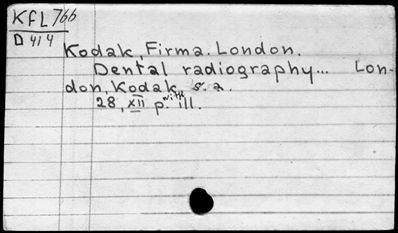 KFL 766
D 414
Kodak, Firma. London.
Dental radiography... Lon-
don, Kodak, s. a.
28, XII p. with ill.